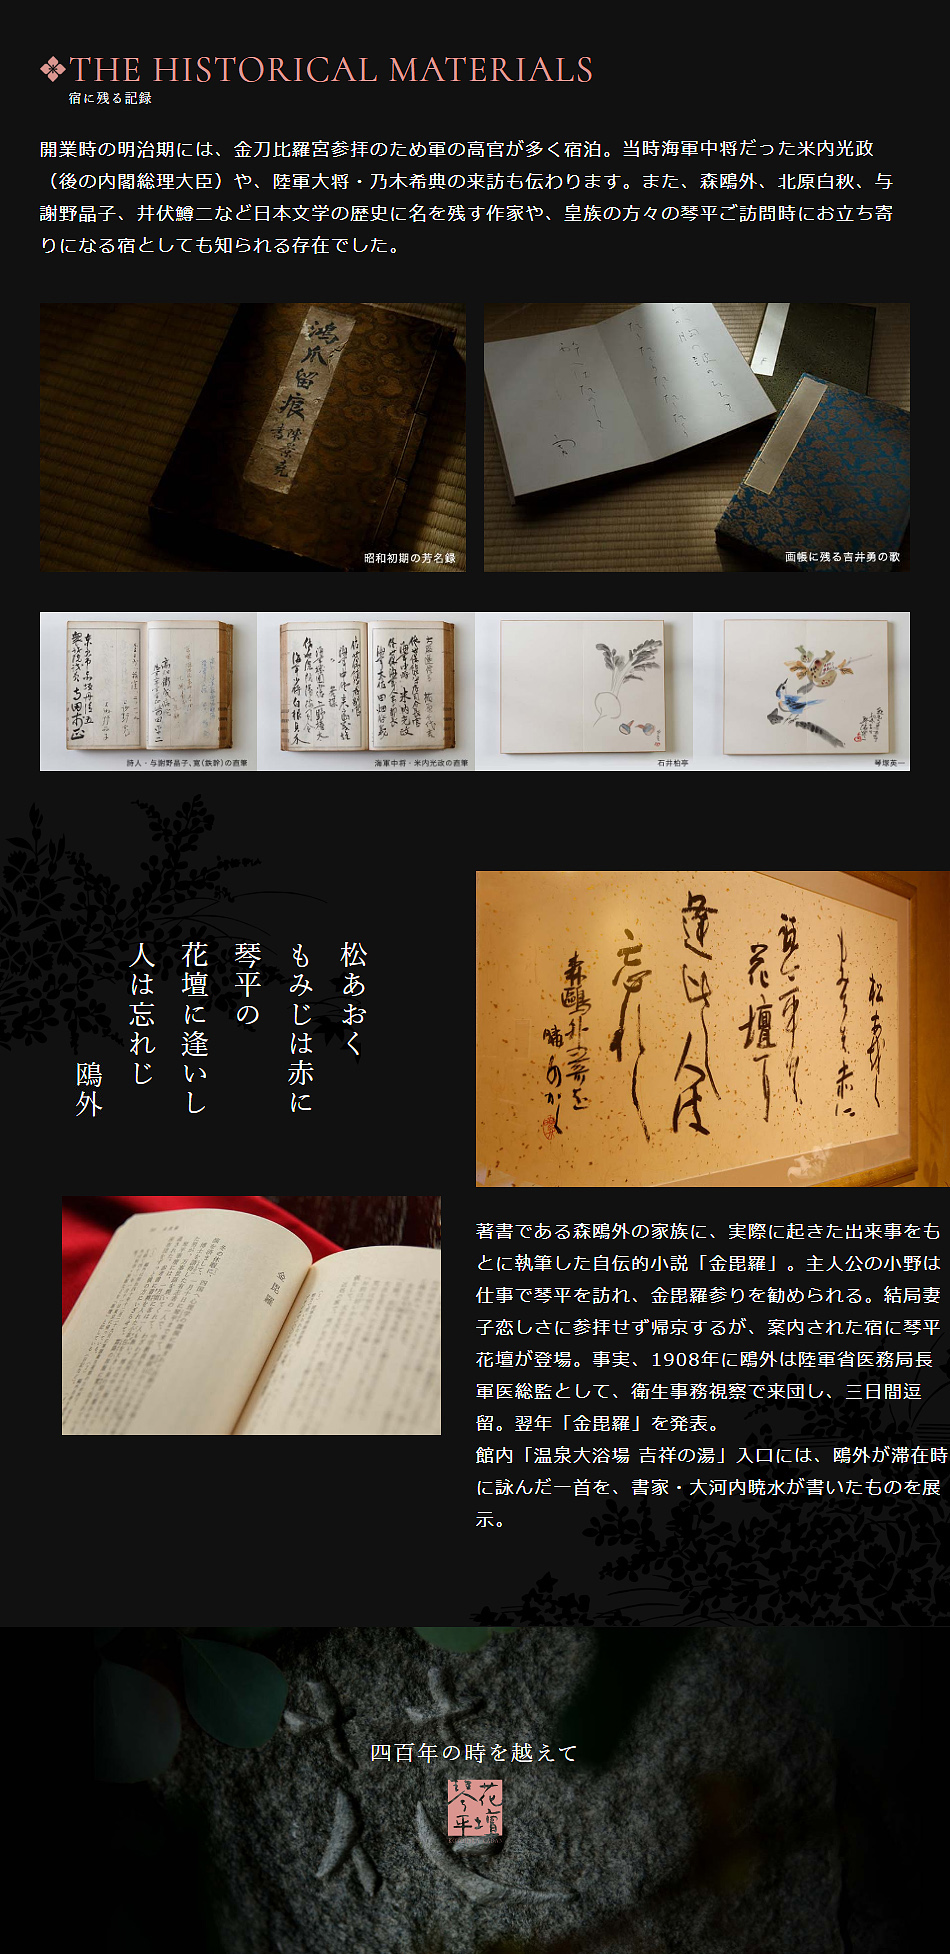 THE HISTORICAL MATERIALS
宿に残る記録
開業時の明治期には、金刀比羅宮参拝のため軍の高官が多く宿泊。当時海軍中将だった米内光政
（後の内閣総理大臣）や、陸軍大将・乃木希典の来訪も伝わります。また、森鴎外、北原白秋、与
謝野晶子、井伏鱒二など日本文学の歴史に名を残す作家や、皇族の方々の琴平ご訪問時にお立ち寄
りになる宿としても知られる存在でした。
鴻爪留痕
昭和初期の芳名録
画帳に残る吉井勇の歌
詩人・与謝野晶子、寛(鉄幹)の直筆
海軍中将・米内光政の直筆
石井柏亭
琴塚英一
松あおく
もみじは赤に
琴平の
花壇に逢いし
人は忘れじ
鴎外
金毘羅
著書である森鴎外の家族に、実際に起きた出来事をも
とに執筆した自伝的小説「金毘羅」。主人公の小野は
仕事で琴平を訪れ、金毘羅参りを勧められる。結局妻
子恋しさに参拝せず帰京するが、案内された宿に琴平
花壇が登場。事実、1908年に鴎外は陸軍省医務局長
軍医総監として、衛生事務視察で来団し、三日間逗
留。翌年「金毘羅」を発表。
館内「温泉大浴場 吉祥の湯」入口には、鴎外が滞在時
に詠んだ一首を、書家・大河内暁水が書いたものを展
示。
四百年の時を越えて
琴平
花壇